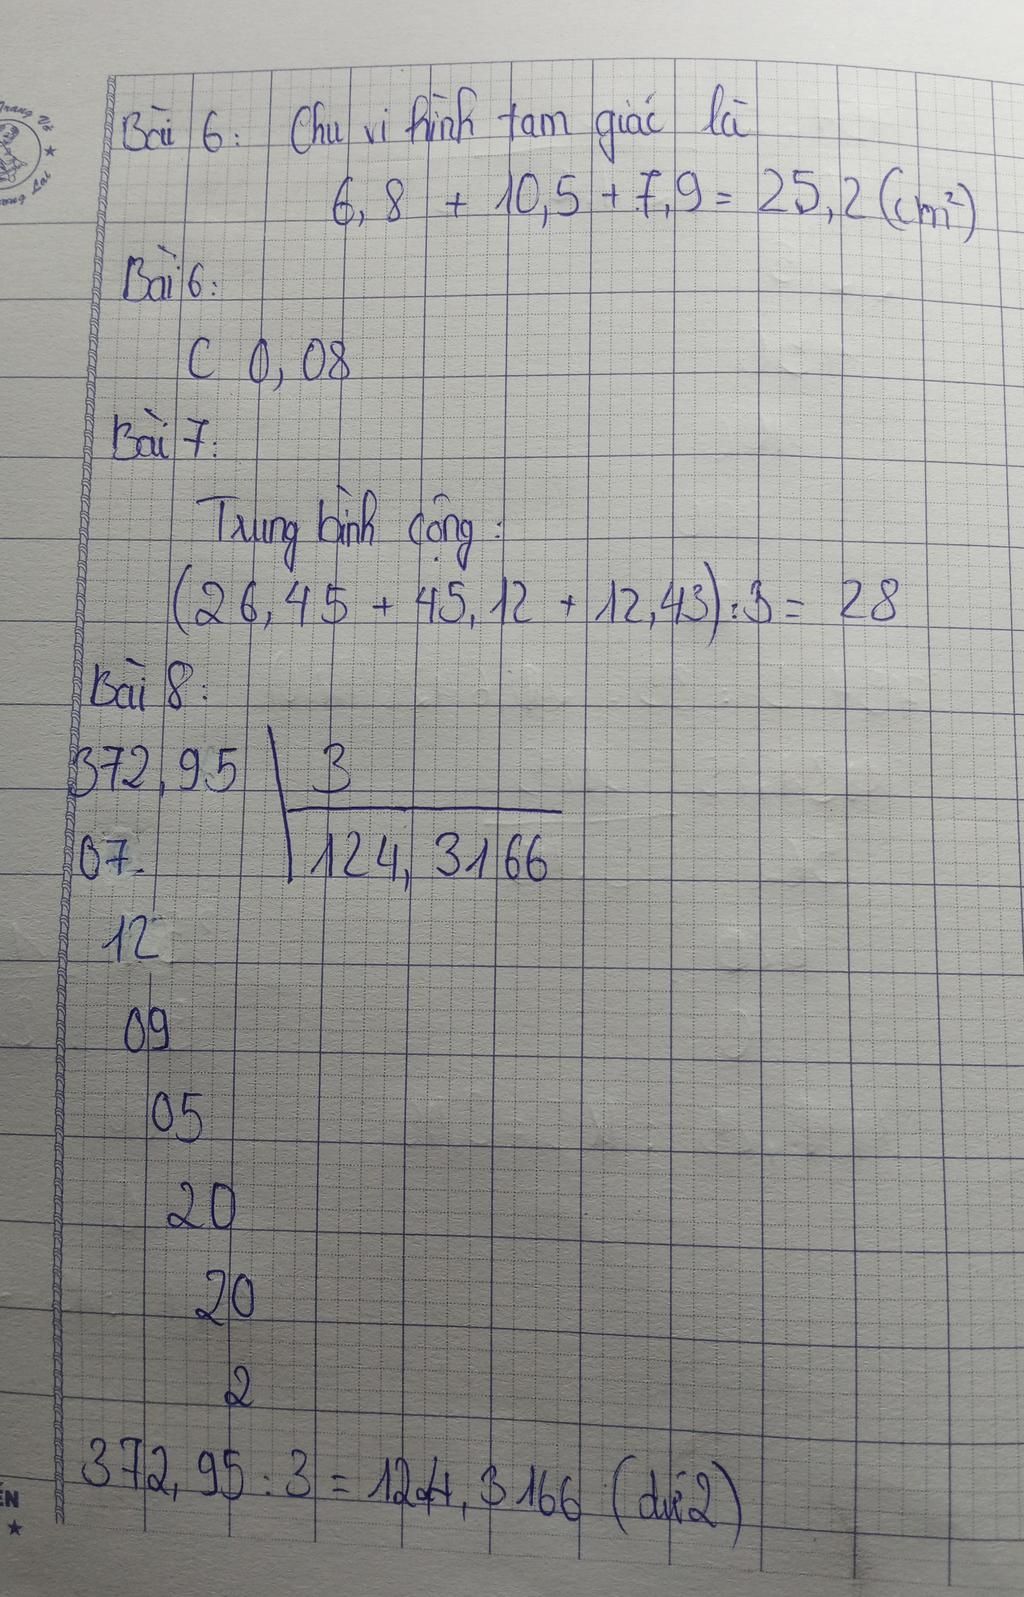 Bài 6: Chu vi hình tam giác là
6,8 + 10,5 + 7,9 = 25,2 (cm²)
Bài 6:
C 0,08
Bài 7:
Trung bình cộng:
(26,45 + 45,12 + 12,43) : 3 = 28
Bài 8:
372,95 3
07 124,3166
12
09
05
20
20
2
372,95 : 3 = 124,3166 (dư 2)